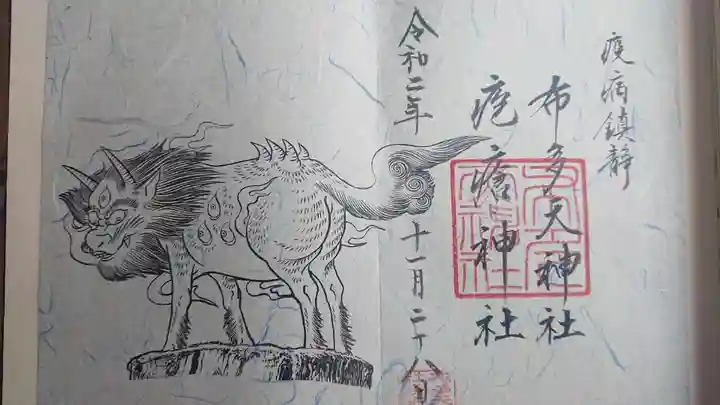 疫病鎮静
布多天神社
疱瘡神社
令和二年 十一月二十八日